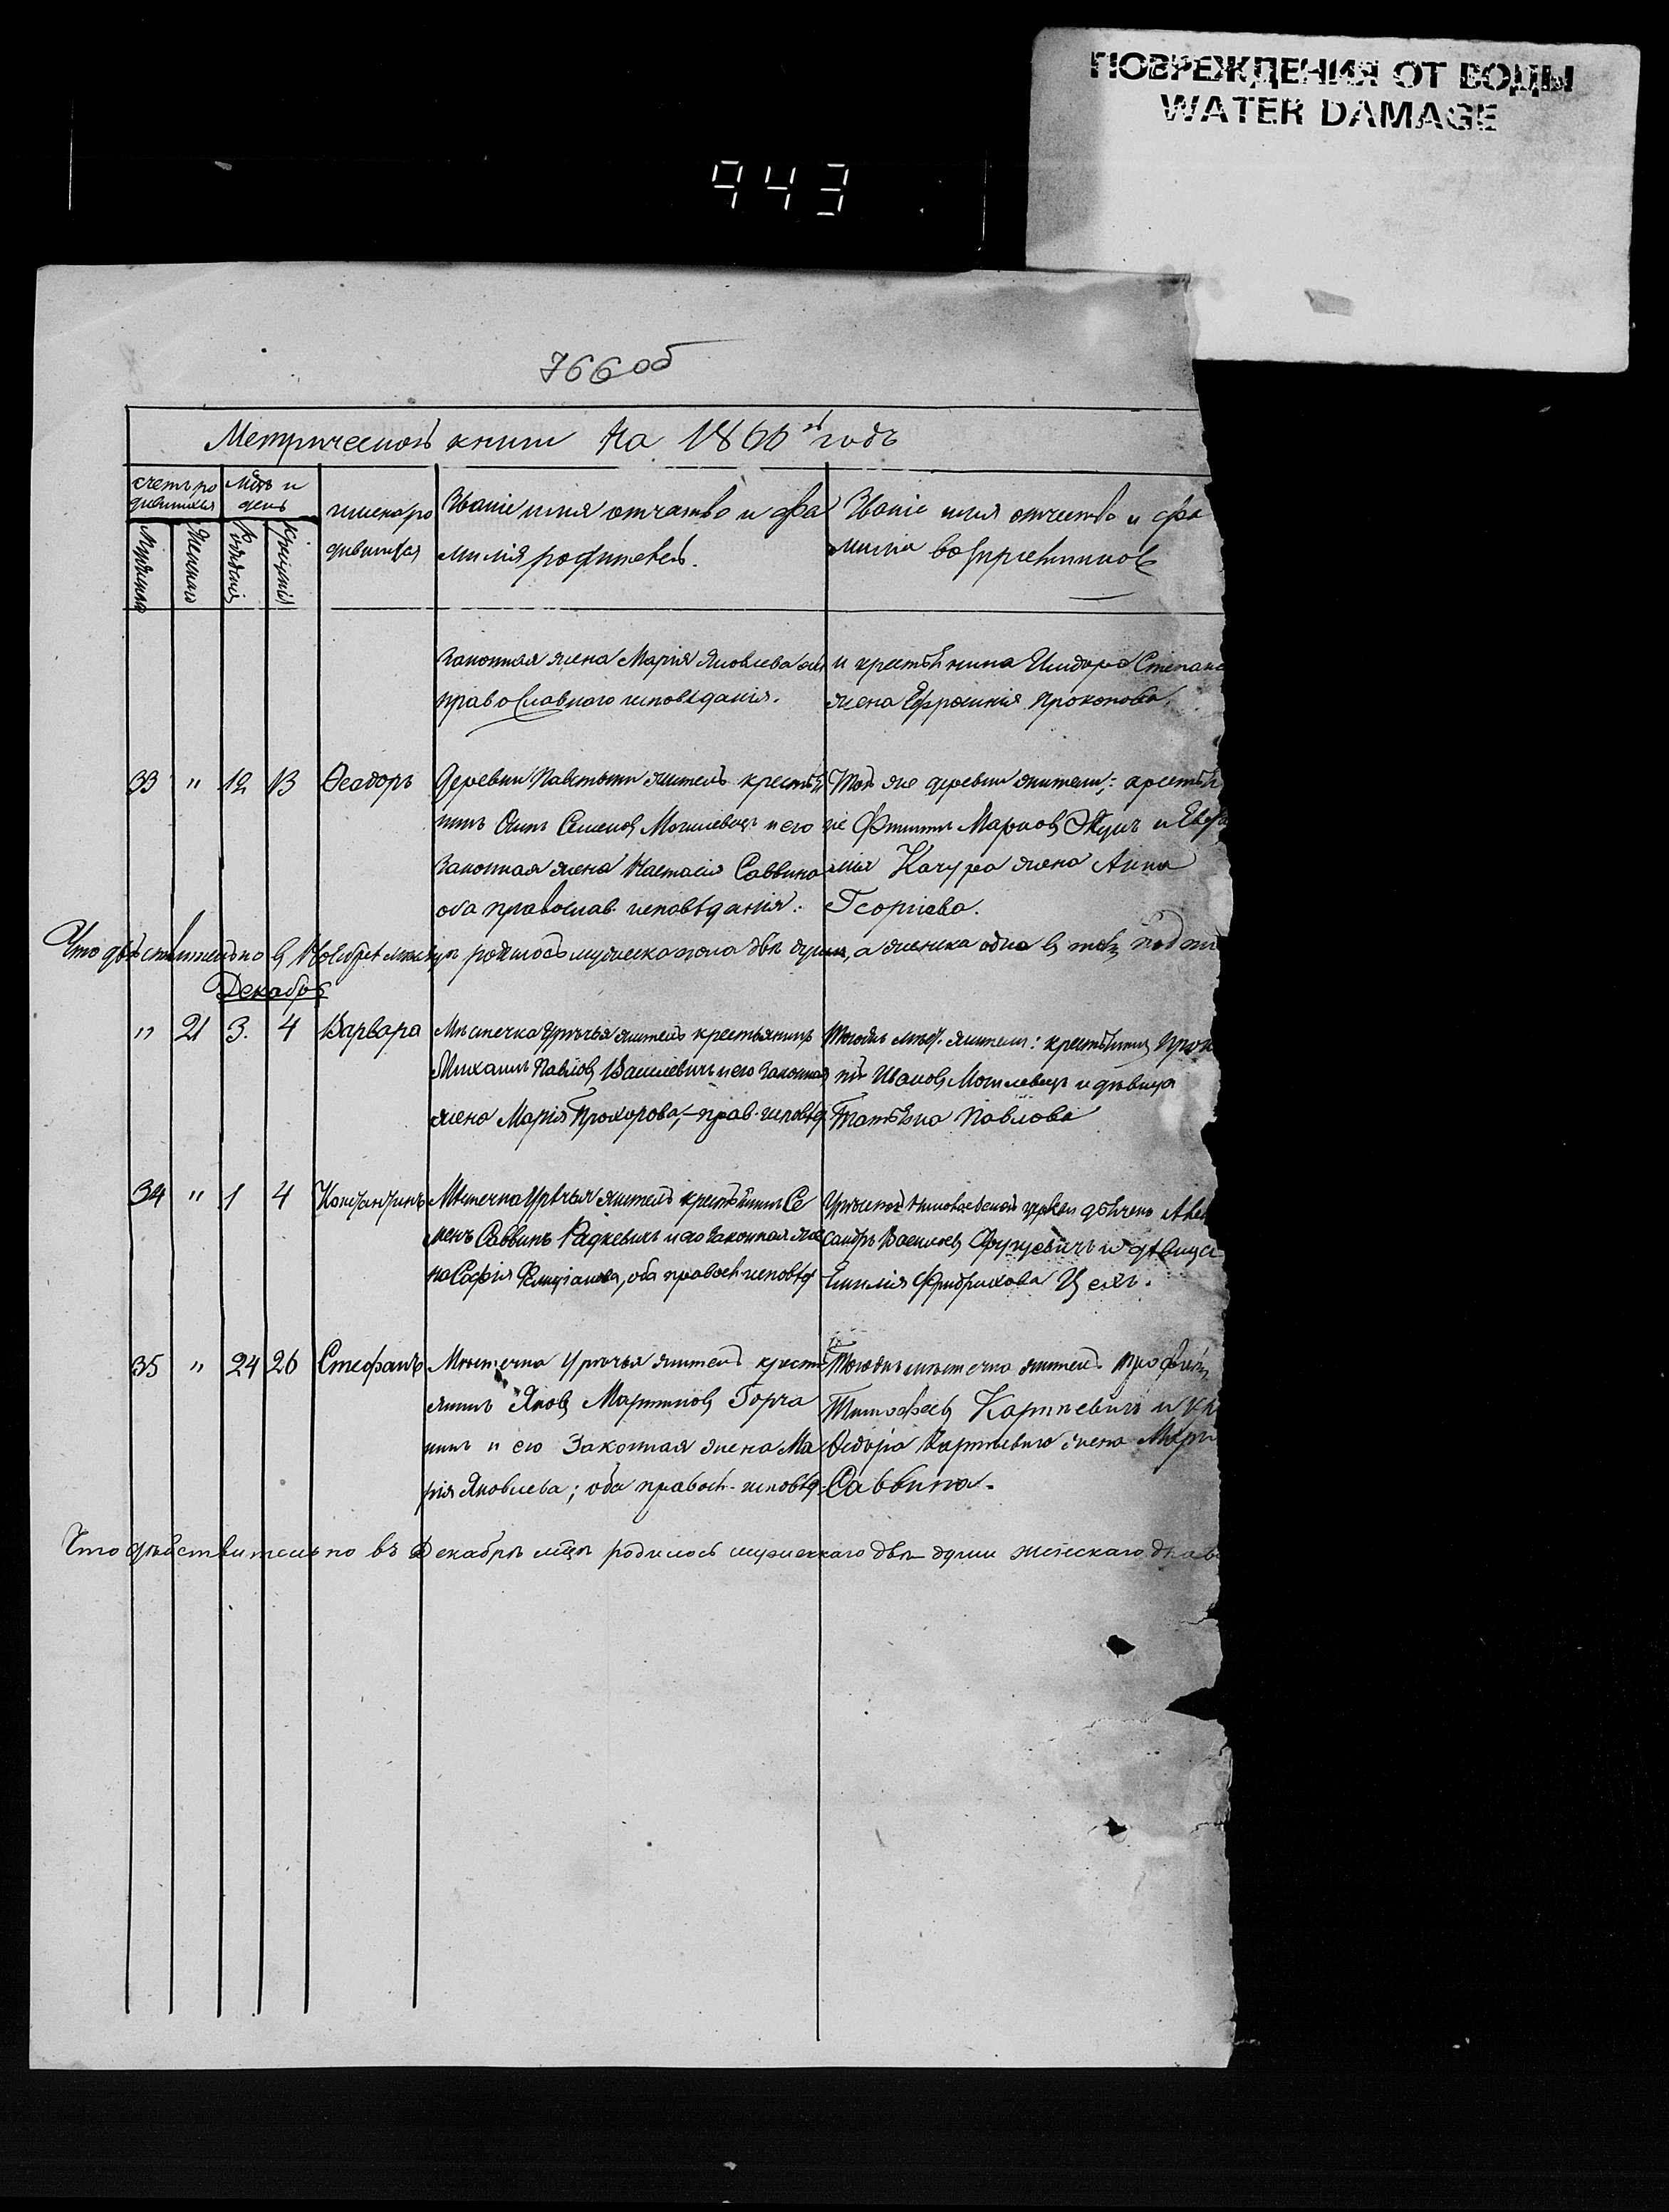 ПОВРЕЖДЕНИЯ ОТ ВОДЫ
WATER DAMAGE
943
766 об
Метрической книги на 1866й годъ
счетъ ро
дившихся
Мѣсяцъ и
день
имена ро
дившихся
Званіе имя отчество и фа
милія родителей.
Званіе имя отчество и фа
милія воспріемниковъ
Мужеска
Женскаго
Рожденія
Крещенія
Законная жена Марія Яковлева оба
православнаго исповѣданія.
и крестьянина Исидора Степано
жена Ефросинія Прокопова.
33 " 12 13 Ѳеодоръ
Деревни житель крестья
нинъ Осипъ Семеновъ Могилевецъ и его
Законная жена Настасія Саввина
оба православ. исповѣданія.
Той же деревни жители: крестья
не Филиппъ Марковъ и
Качура жена Анна
Георгіева.
Что дѣйствительно въ Ноябрѣ мѣсяцѣ родилось мужеска пола двѣ души, а женска одна въ томъ
Декабрь
" 21 3. 4 Варвара
Мѣстечка Урѣчья житель крестьянинъ
Михаилъ Павловъ Василевичъ и его законная
жена Марія Прохорова, прав. исповѣд
Тогожъ мѣст. жители: крестьянинъ
Ивановъ Могилевецъ и дѣвица
Татьяна Павлова
34 " 1 4 Константинъ
Мѣстечка Урѣчья житель крестьянинъ Се
менъ Саввинъ Радкевичъ и его законная же
на Софія оба правосл. исповѣд
Урѣчской Николаевской церкви дьячекъ Алек
сандръ Васильевъ и дѣвица
Емилія Фридрихова
35 " 24 26 Стефанъ
Мѣстечка Урѣчья житель кресть
янинъ Яковъ Мартиновъ Горча
нинъ и его Законная жена Ма
рія Яковлева; оба правосл. исповѣд.
Тогожъ мѣстечка житель
Тимофеевъ Карпіевичъ и кр
Ѳедора Карпіевича жена Марі
Саввина.
Что дѣйствительно въ Декабрѣ мѣсяцѣ родилось мужескаго двѣ души женскаго